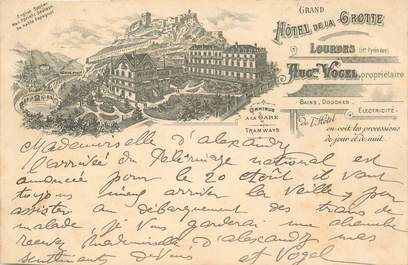 English Spoken
Man spricht Deutsch
Se habla Espagnol
GRAND
HÔTEL DE LA GROTTE
LOURDES (Htes Pyrénées)
AUGte VOGEL, propriétaire
BAINS, DOUCHES
ELECTRICITÉ
OMNIBUS
A LA GARE
TRAMWAYS
de l'Hôtel
on voit les processions
de jour et de nuit.
Mademoiselle d'alexandry
l'arrivée du Pélerinage national est
annoncée pour le 20 août il vaut
toujours mieux arriver la Veille, pour
assister au débarquement des trains de
malade, je vous garderai une chambre
recevez Mademoiselle d'alexandry mes
sentiments
et Vogel